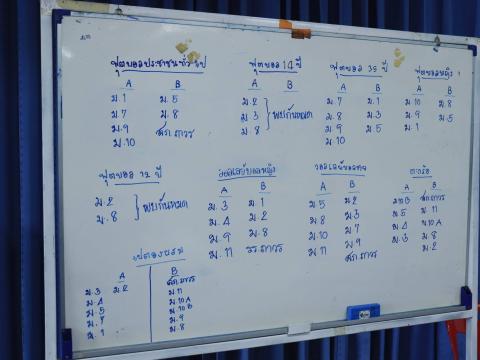 ฟุตบอลประชาชนทั่วไป
A B
ม.1 ม.5
ม.7 ม.8
ม.9 สภ.ถาวร
ม.10
ฟุตบอล 14 ปี
ม.2
ม.3 พบกันหมด
ม.8
ฟุตบอล 35 ปี
A B
ม.7 ม.1
ม.8 ม.3
ม.9 ม.5
ฟุตบอลหญิง
A B
ม.10 ม.8
ม.9 ม.5
ม.1
ฟุตบอล 12 ปี
ม.2
ม.8 พบกันหมด
วอลเลย์บอลหญิง
A B
ม.3 ม.1
ม.4 ม.2
ม.9 ม.8
ม.11 รร.ถาวร
วอลเลย์บอลชาย
A B
ม.5 ม.2
ม.8 ม.3
ม.10 ม.7
ม.11 ม.9
สภ.ถาวร
ตะกร้อ
A B
ม.10B สภ.ถาวร
ม.5 ม.11
ม.4 ม.10A
ม.3 ม.8
ม.2
เปตองผสม
A B
ม.3 ม.2 สภ.ถาวร
ม.4 ม.11
ม.5 ม.10A
ม.7 ม.10B
ม.1 ม.9
ม.8